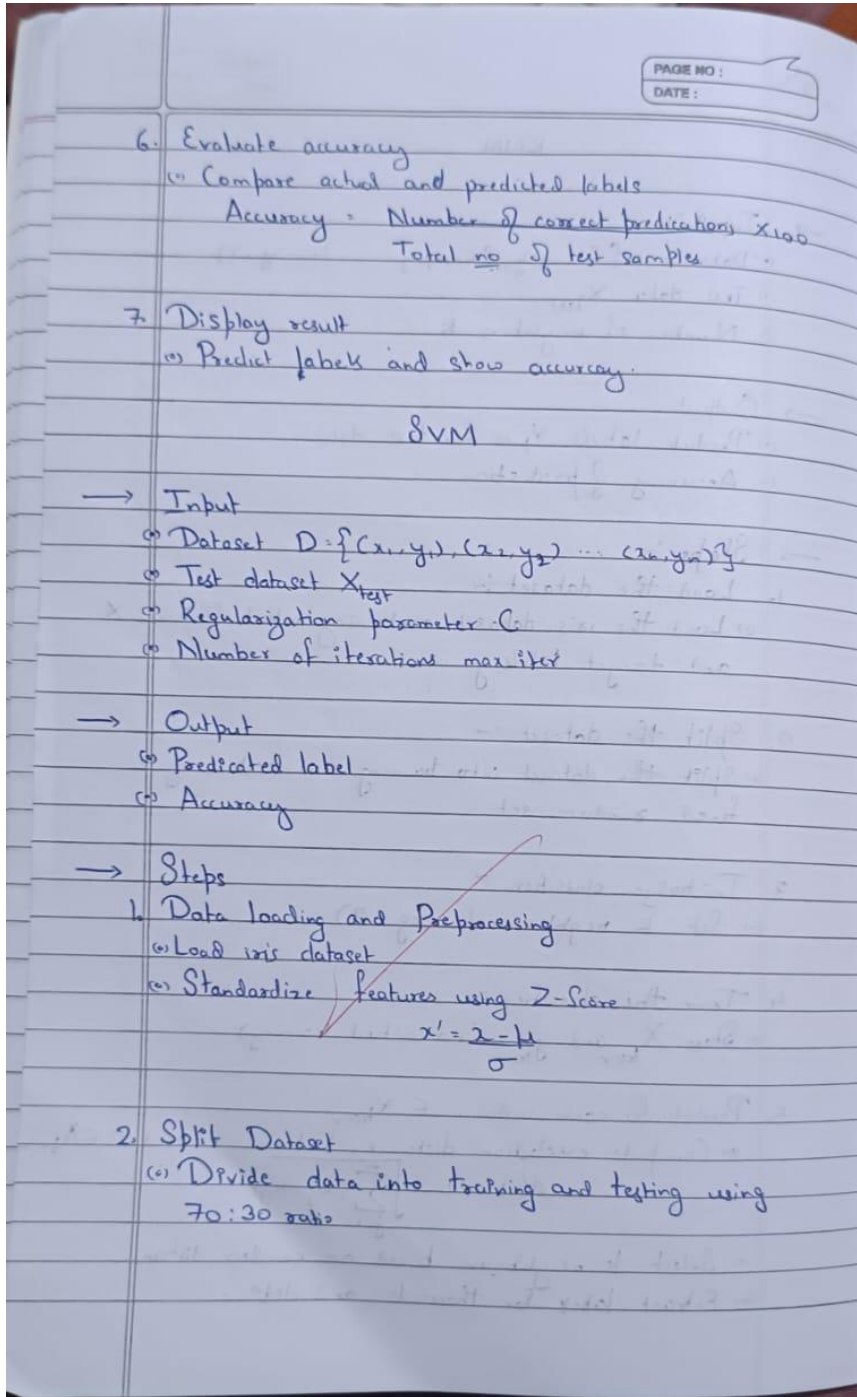 PAGE NO :
DATE :
6. Evaluate accuracy
(•) Compare actual and predicted labels
Accuracy = Number of correct predications x100
Total no of test samples
7. Display result
(•) Predict labels and show accurcay.
SVM
→ Input
(•) Dataset D = {(x₁, y₁), (x₂, y₂) ... (xₙ, yₙ)}
(•) Test dataset X_test
(•) Regularization parameter C
(•) Number of iterations max iter
→ Output
(•) Predicated label
(•) Accuracy
→ Steps
1. Data loading and Preprocessing
(•) Load iris dataset
(•) Standardize features using Z-Score
x' = x - μ
σ
2. Split Dataset
(•) Divide data into training and testing using
70:30 ratio